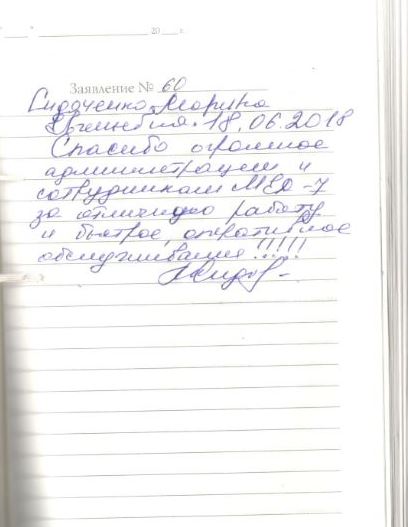 " " 20 г.
Заявление № 60
Сидаченко Марина
Евгеньевна. 18.06.2018
Спасибо огромное
администрации и
сотрудникам МЕД-7
за отличную работу
и быстрое, оперативное
обслуживание!!!!!